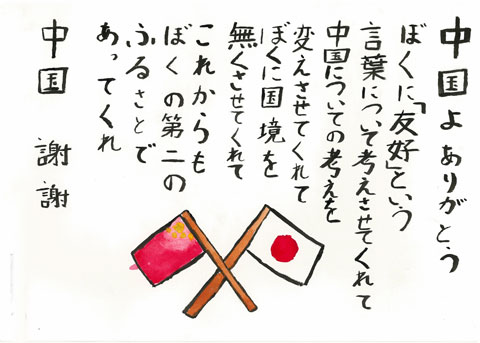 中国よありがとう
ぼくに「友好」という
言葉について考えさせてくれて
中国についての考えを
変えさせてくれて
ぼくに国境を
無くさせてくれて
これからも
ぼくの第二の
ふるさとで
あってくれ
中国 謝謝